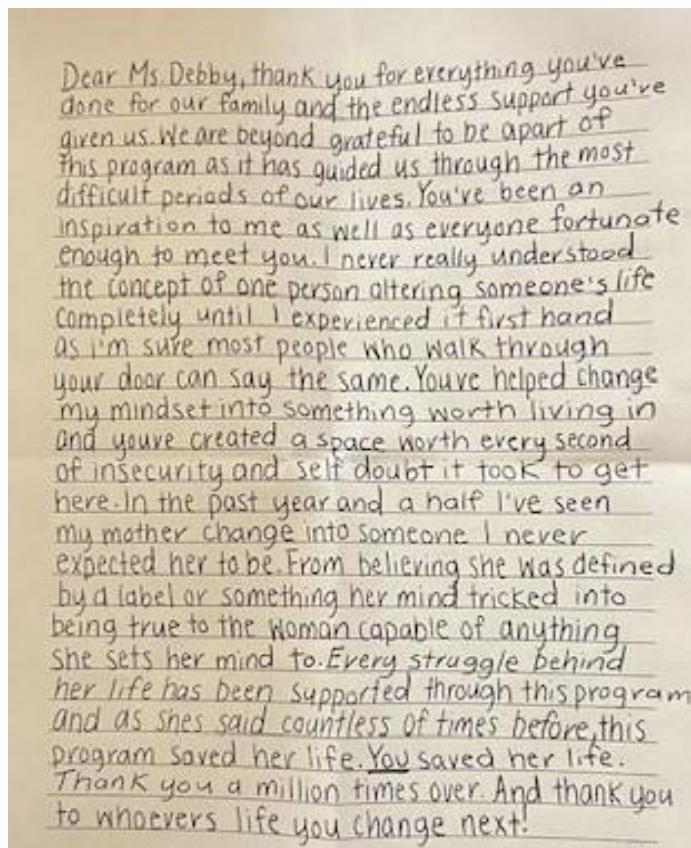 Dear Ms. Debby, thank you for everything you've
done for our family and the endless support you've
given us. We are beyond grateful to be apart of
this program as it has guided us through the most
difficult periods of our lives. You've been an
inspiration to me as well as everyone fortunate
enough to meet you. I never really understood
the concept of one person altering someone's life
completely until I experienced it first hand
as i'm sure most people who walk through
your door can say the same. Youve helped change
my mindset into something worth living in
and youve created a space worth every second
of insecurity and self doubt it took to get
here. In the past year and a half I've seen
my mother change into someone I never
expected her to be. From believing she was defined
by a label or something her mind tricked into
being true to the woman capable of anything
she sets her mind to. Every struggle behind
her life has been supported through this program
and as shes said countless of times before, this
program saved her life. You saved her life.
Thank you a million times over. And thank you
to whoevers life you change next!